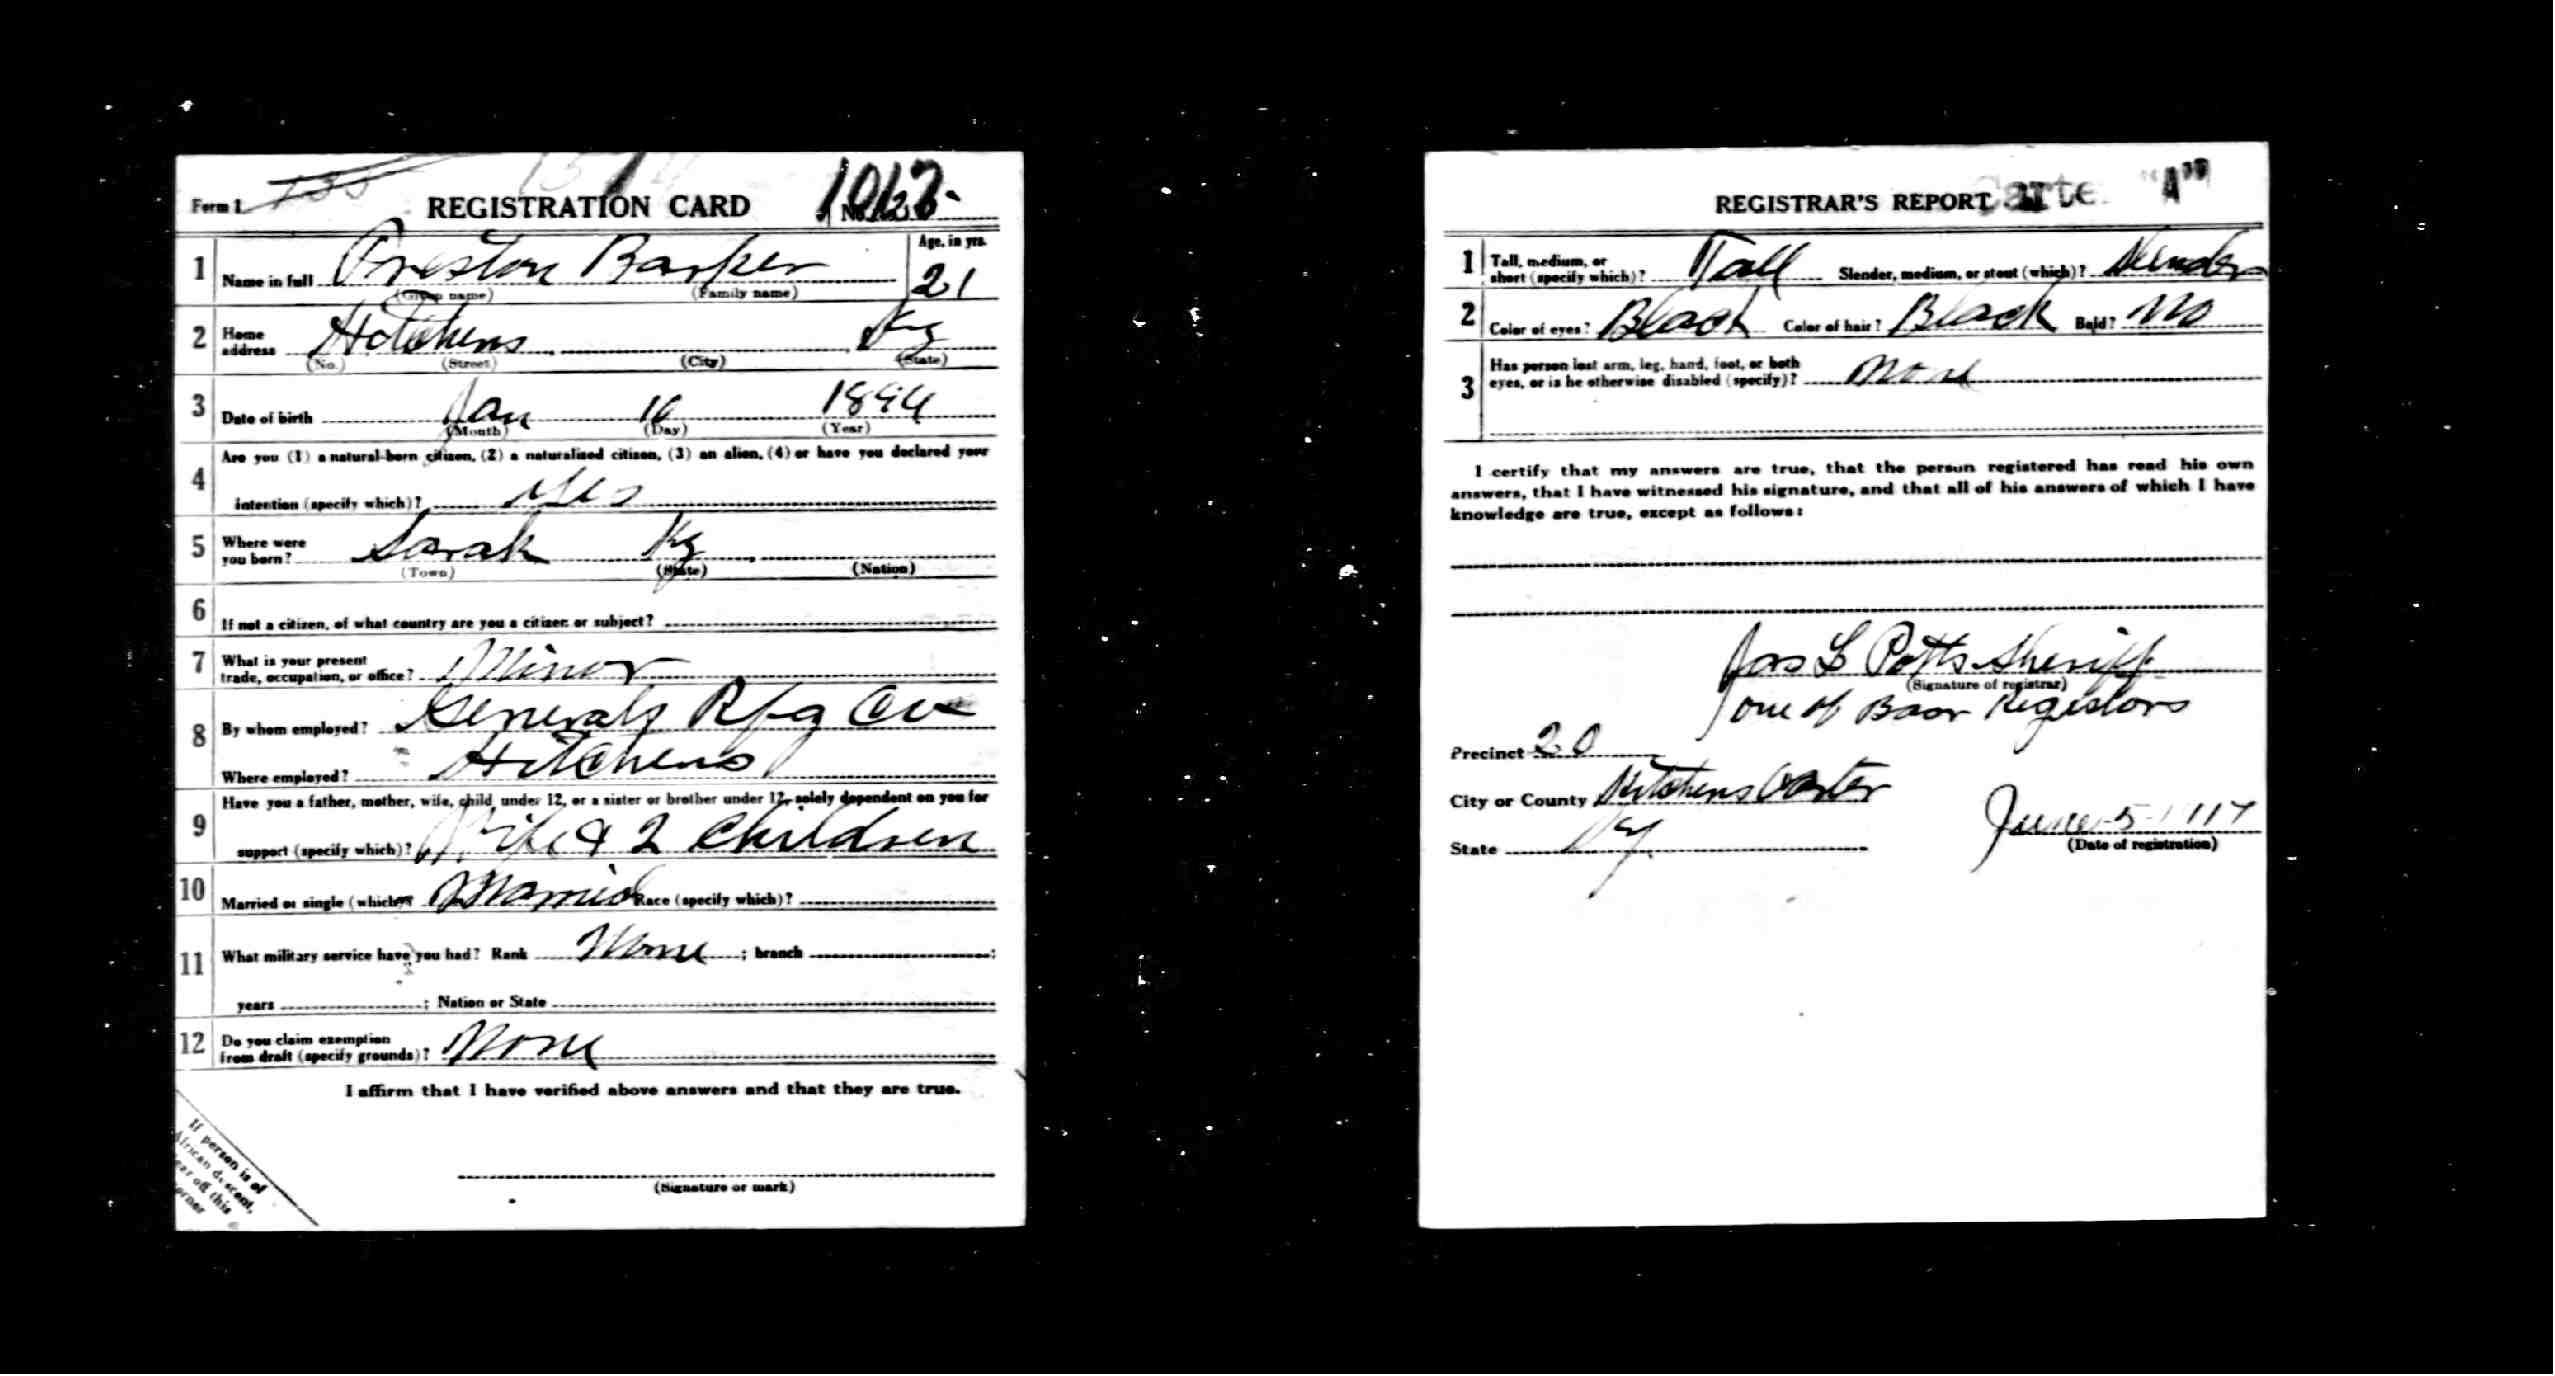 Form 1 REGISTRATION CARD No.
1 Name in full Preston Barker Age, in yrs. 21
(Given name) (Family name)
2 Home address Hotchens Ky
(No.) (Street) (City) (State)
3 Date of birth Jan 16 1896
(Month) (Day) (Year)
4 Are you (1) a natural-born citizen, (2) a naturalized citizen, (3) an alien, (4) or have you declared your
intention (specify which)? Yes
5 Where were you born? Sarah Ky
(Town) (State) (Nation)
6 If not a citizen, of what country are you a citizen or subject?
7 What is your present trade, occupation, or office? Minor
8 By whom employed? Generals Rfg Co
Where employed? Hitchens
9 Have you a father, mother, wife, child under 12, or a sister or brother under 12, solely dependent on you for
support (specify which)? Wife & 2 Children
10 Married or single (which)? Married Race (specify which)?
11 What military service have you had? Rank None ; branch ;
years ; Nation or State
12 Do you claim exemption from draft (specify grounds)? None
I affirm that I have verified above answers and that they are true.
(Signature or mark)
If person is of
African descent,
tear off this
corner
REGISTRAR'S REPORT Carter "A"
1 Tall, medium, or short (specify which)? Tall Slender, medium, or stout (which)? Slender
2 Color of eyes? Black Color of hair? Black Bald? No
3 Has person lost arm, leg, hand, foot, or both
eyes, or is he otherwise disabled (specify)? None
I certify that my answers are true, that the person registered has read his own
answers, that I have witnessed his signature, and that all of his answers of which I have
knowledge are true, except as follows:
Jas L Potts Sheriff
(Signature of registrar)
one of Boar Registors
Precinct 20
City or County Hitchens Carter
State Ky June 5-1917
(Date of registration)